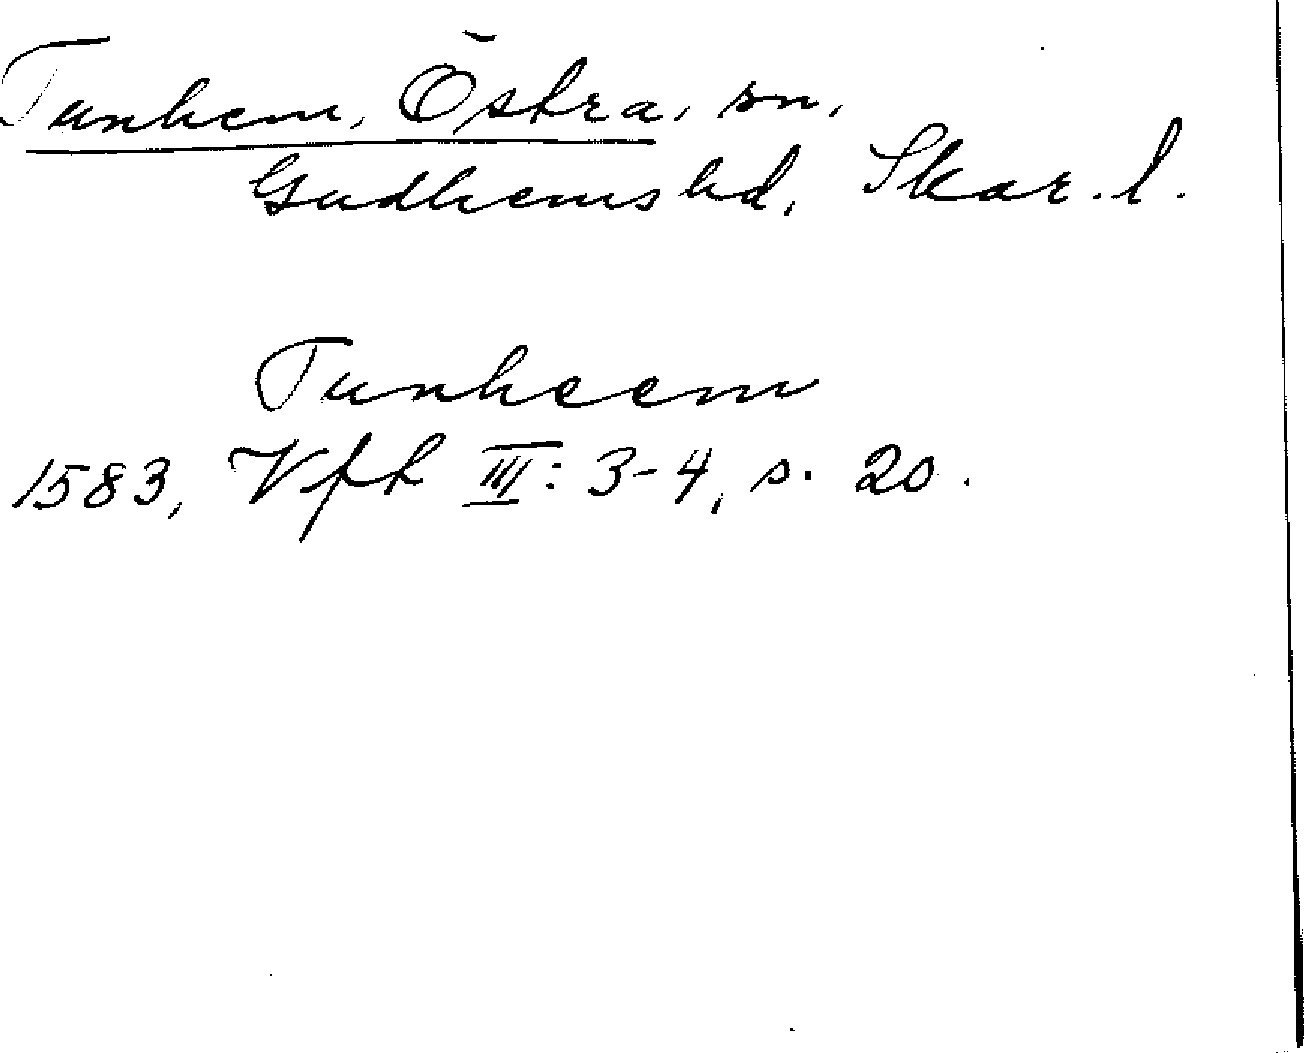 Tunhem, Östra, sn,
Gudhems hd, Skar. l.
Tunheem
1583, Vfh III: 3-4, s. 20.